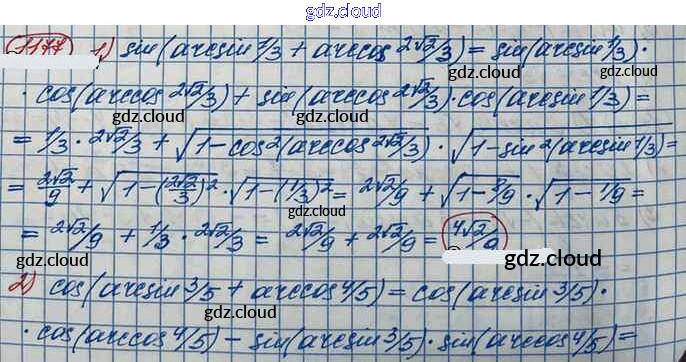 gdz.cloud
gdz.cloud
1177 1) sin(arcsin 1/3 + arccos 2√2/3) = sin(arcsin 1/3)·
gdz.cloud
· cos(arccos 2√2/3) + sin(arccos 2√2/3)·cos(arcsin 1/3) =
gdz.cloud gdz.cloud
= 1/3 · 2√2/3 + √(1-cos²(arccos 2√2/3)) · √(1-sin²(arcsin 1/3)) =
gdz.cloud
= 2√2/9 + √(1-(2√2/3)²) · √(1-(1/3)²) = 2√2/9 + √(1-8/9) · √(1-1/9) =
gdz.cloud
= 2√2/9 + 1/3 · 2√2/3 = 2√2/9 + 2√2/9 = 4√2/9
gdz.cloud gdz.cloud
2) cos(arcsin 3/5 + arccos 4/5) = cos(arcsin 3/5)·
gdz.cloud
· cos(arccos 4/5) - sin(arcsin 3/5)·sin(arccos 4/5) =
gdz.cloud